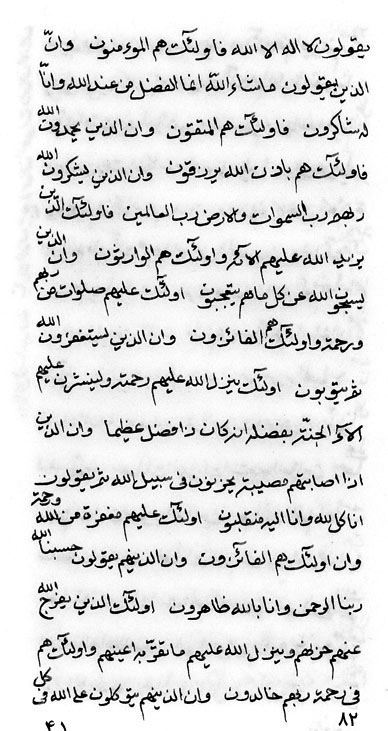 يقولون لا اله الا الله فاولئك هم الموءمنون وانّ
الذين يقولون ماشاء الله انما الفضل من عند الله وانّا
له شاكرون فاولئك هم المتقون وان الذين يحمدون الله
فاولئك هم باذن الله يرزقون وان الذين يشكرون الله
ربهم رب السموات والارض رب العالمين فاولئك الذين
يزيد الله عليهم الآئه واولئك هم الوارثون وان الذين
يسبحون الله عن كل ماهم يتعجبون اولئك عليهم صلوات من ربهم
ورحمة واولئك هم الفائزون وان الذين ليستغفرون الله
ثم يتوبون اولئك ينزل الله عليهم رحمته ولينشرن عليهم
الآء الجنّة بفضله انه كان ذا فضل عظيما وان الذين
اذا اصابتهم مصيبة يحزنون في سبيل الله ثم يقولون
انا كل لله وانا اليه منقلبون اولئك عليهم مغفرة من الله ورحمة
وان اولئك هم الفائزون وان الذينهم يقولون حسبنا الله
ربنا الرحمن وانا بالله ظاهرون اولئك الذين يفرج الله
عنهم حزنهم وينزل الله عليهم ما تقرّ به اعينهم واولئك هم
في رحمة ربهم خالدون وان الذينهم يتوكلون على الله في كل
٨٢
٤١